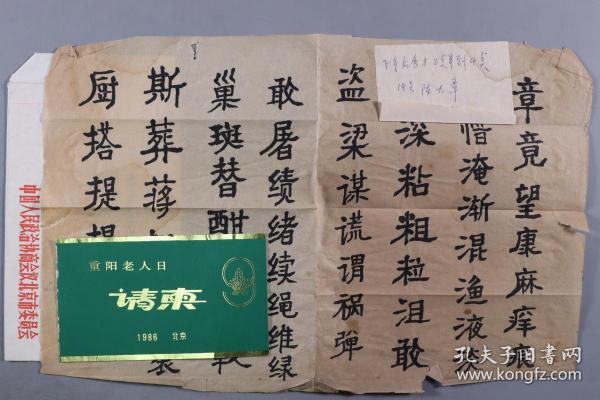 章竟望康麻痒
惜淹渐混渔液
深粘粗粒沮敢
盗梁谋谎谓祸弹
敢屠绩绪续绳维绿
巢斑替酣
斯葬蒋
厨塔提
陈大章
重阳老人日
请柬
1986 北京
中国人民政治协商会议北京市委员会
孔夫子旧书网
www.kongfz.com